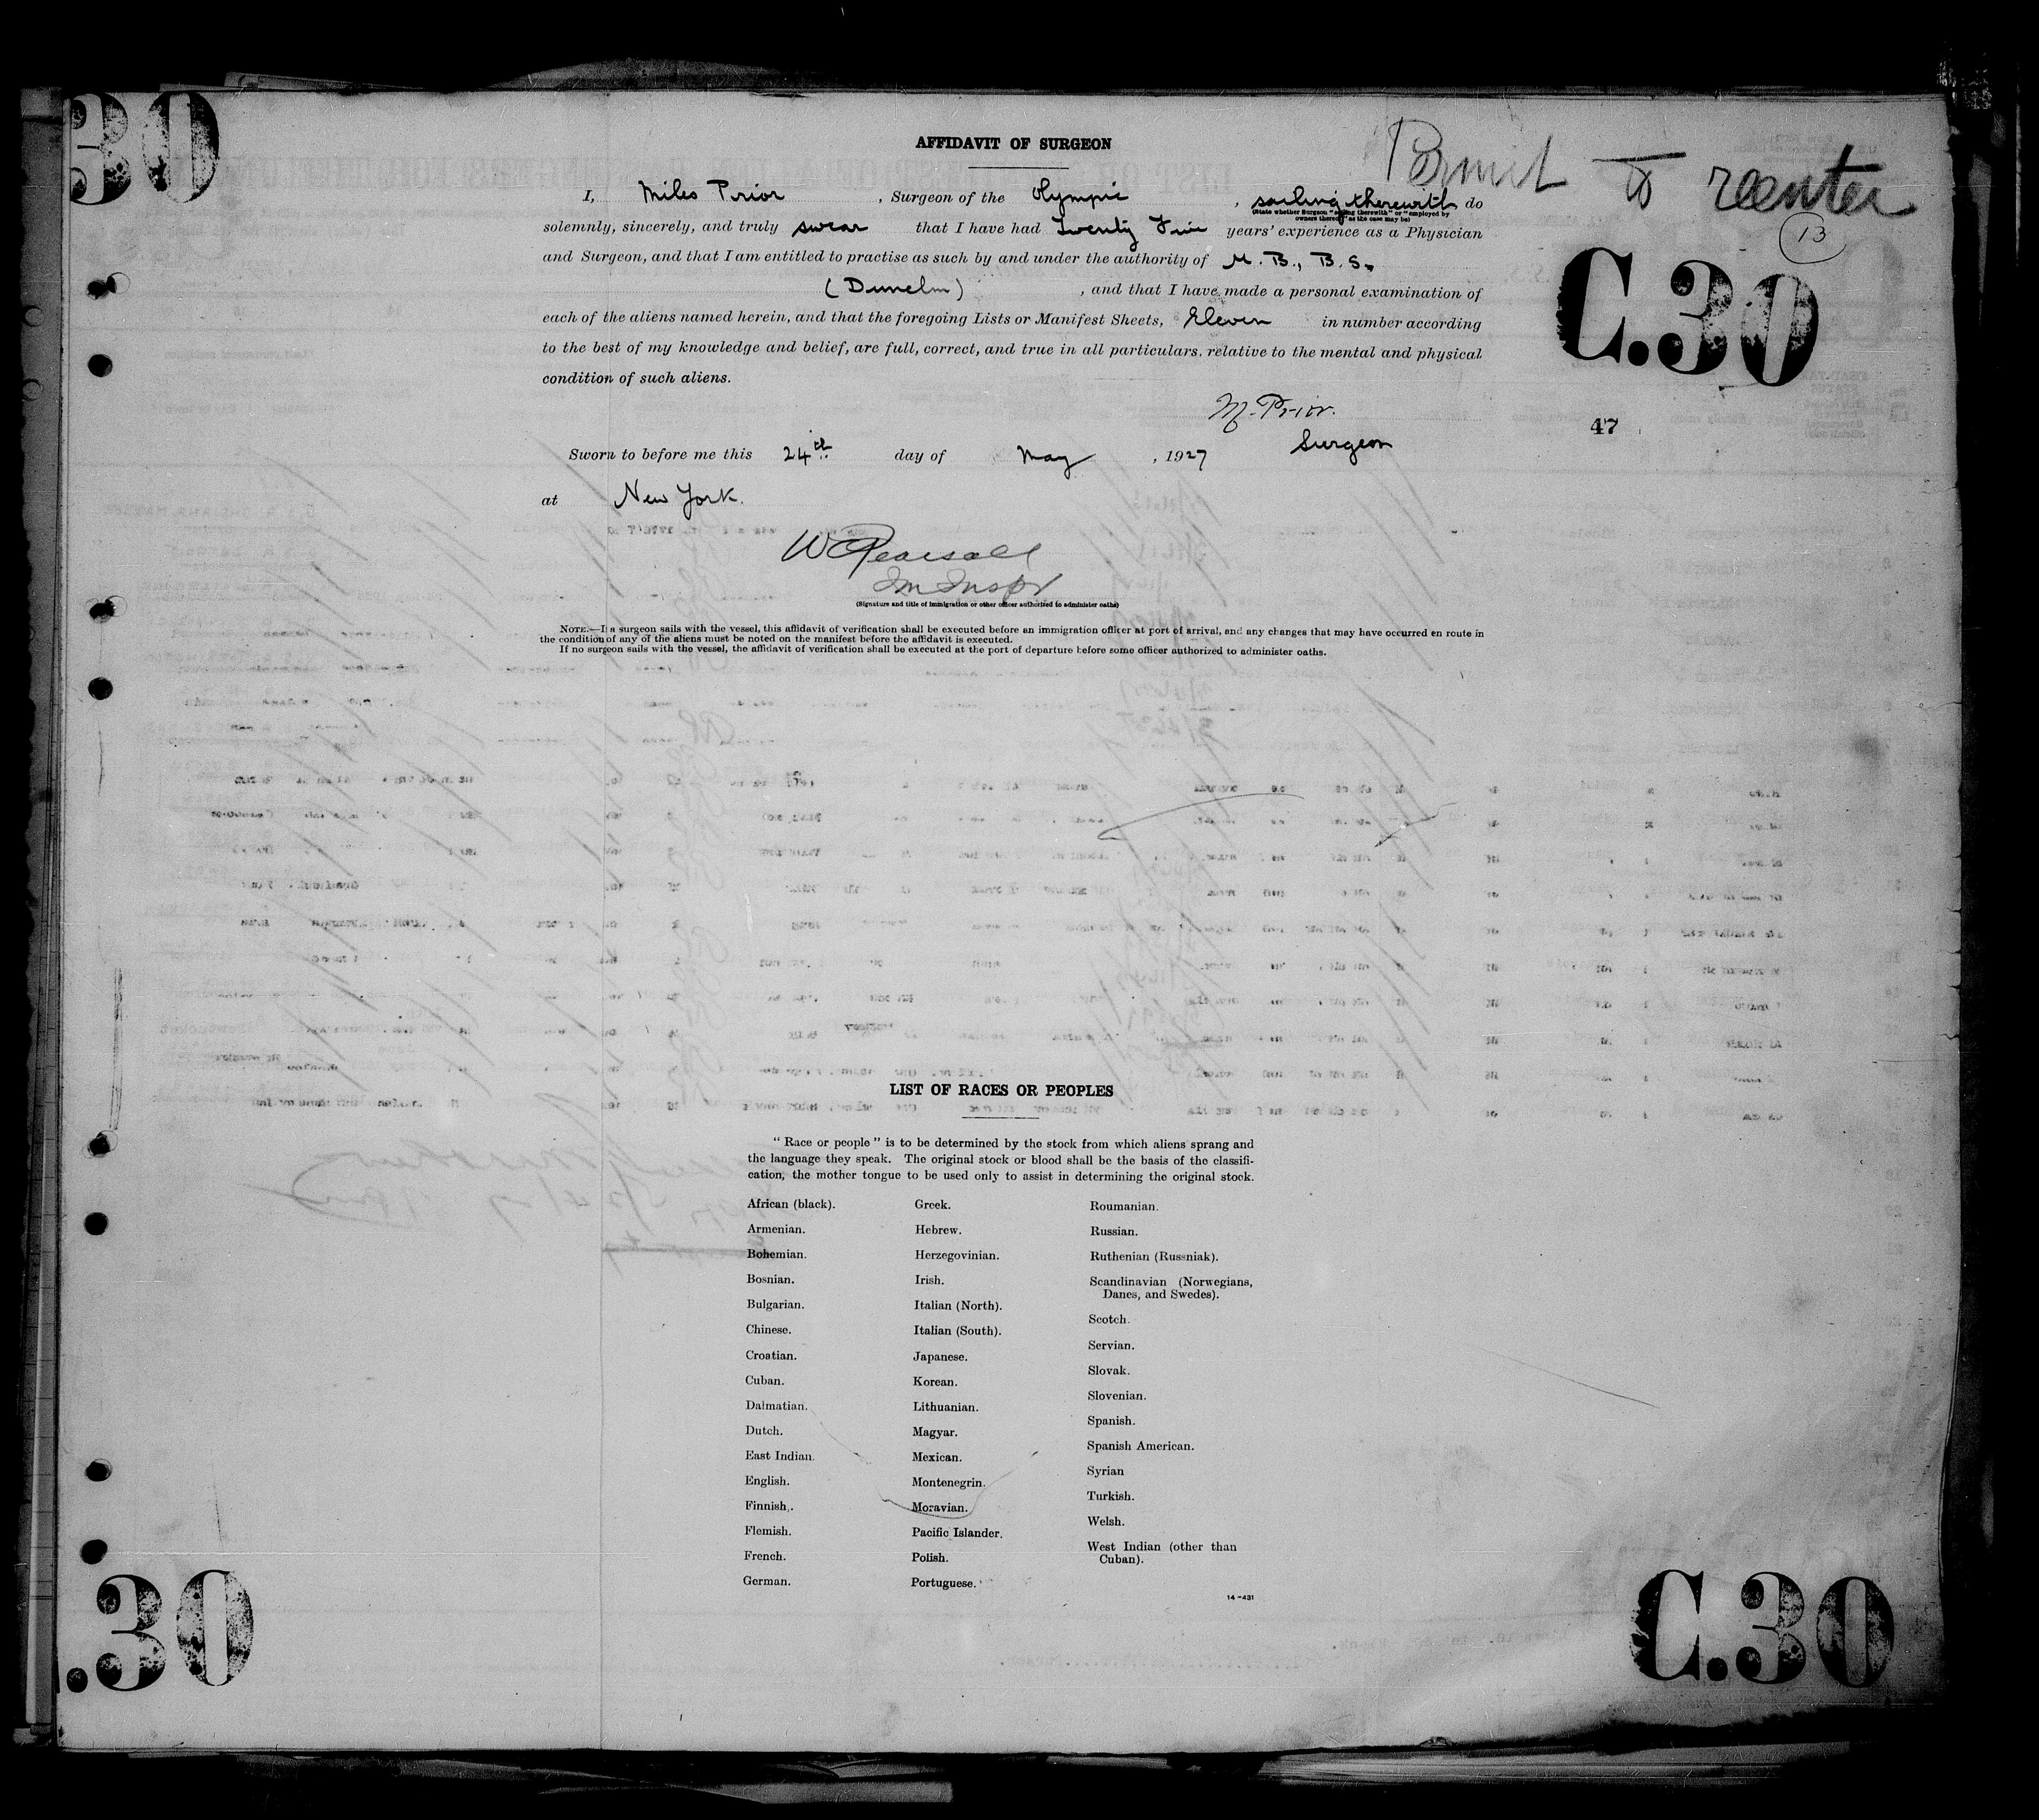 30
AFFIDAVIT OF SURGEON
Permit to reenter
13
I, Miles Prior, Surgeon of the Olympic, sailing therewith do
(State whether Surgeon "sailing therewith" or "employed by
owners thereof," as the case may be)
solemnly, sincerely, and truly swear that I have had Twenty Five years' experience as a Physician
and Surgeon, and that I am entitled to practise as such by and under the authority of M. B., B. S.,
(Dunelm), and that I have made a personal examination of
each of the aliens named herein, and that the foregoing Lists or Manifest Sheets, Eleven in number according
to the best of my knowledge and belief, are full, correct, and true in all particulars, relative to the mental and physical
condition of such aliens.
C.30
M. Prior.
Surgeon
47
Sworn to before me this 24th day of May, 1927
at New York.
W Pearsall
Im Inspr
(Signature and title of immigration or other officer authorized to administer oaths)
NOTE.—If a surgeon sails with the vessel, this affidavit of verification shall be executed before an immigration officer at port of arrival, and any changes that may have occurred en route in
the condition of any of the aliens must be noted on the manifest before the affidavit is executed.
If no surgeon sails with the vessel, the affidavit of verification shall be executed at the port of departure before some officer authorized to administer oaths.
LIST OF RACES OR PEOPLES
" Race or people " is to be determined by the stock from which aliens sprang and
the language they speak. The original stock or blood shall be the basis of the classifi-
cation, the mother tongue to be used only to assist in determining the original stock.
African (black).
Armenian.
Bohemian.
Bosnian.
Bulgarian.
Chinese.
Croatian.
Cuban.
Dalmatian.
Dutch.
East Indian.
English.
Finnish.
Flemish.
French.
German.
Greek.
Hebrew.
Herzegovinian.
Irish.
Italian (North).
Italian (South).
Japanese.
Korean.
Lithuanian.
Magyar.
Mexican.
Montenegrin.
Moravian.
Pacific Islander.
Polish.
Portuguese.
Roumanian.
Russian.
Ruthenian (Russniak).
Scandinavian (Norwegians,
Danes, and Swedes).
Scotch.
Servian.
Slovak.
Slovenian.
Spanish.
Spanish American.
Syrian
Turkish.
Welsh.
West Indian (other than
Cuban).
14-431
.30
C.30